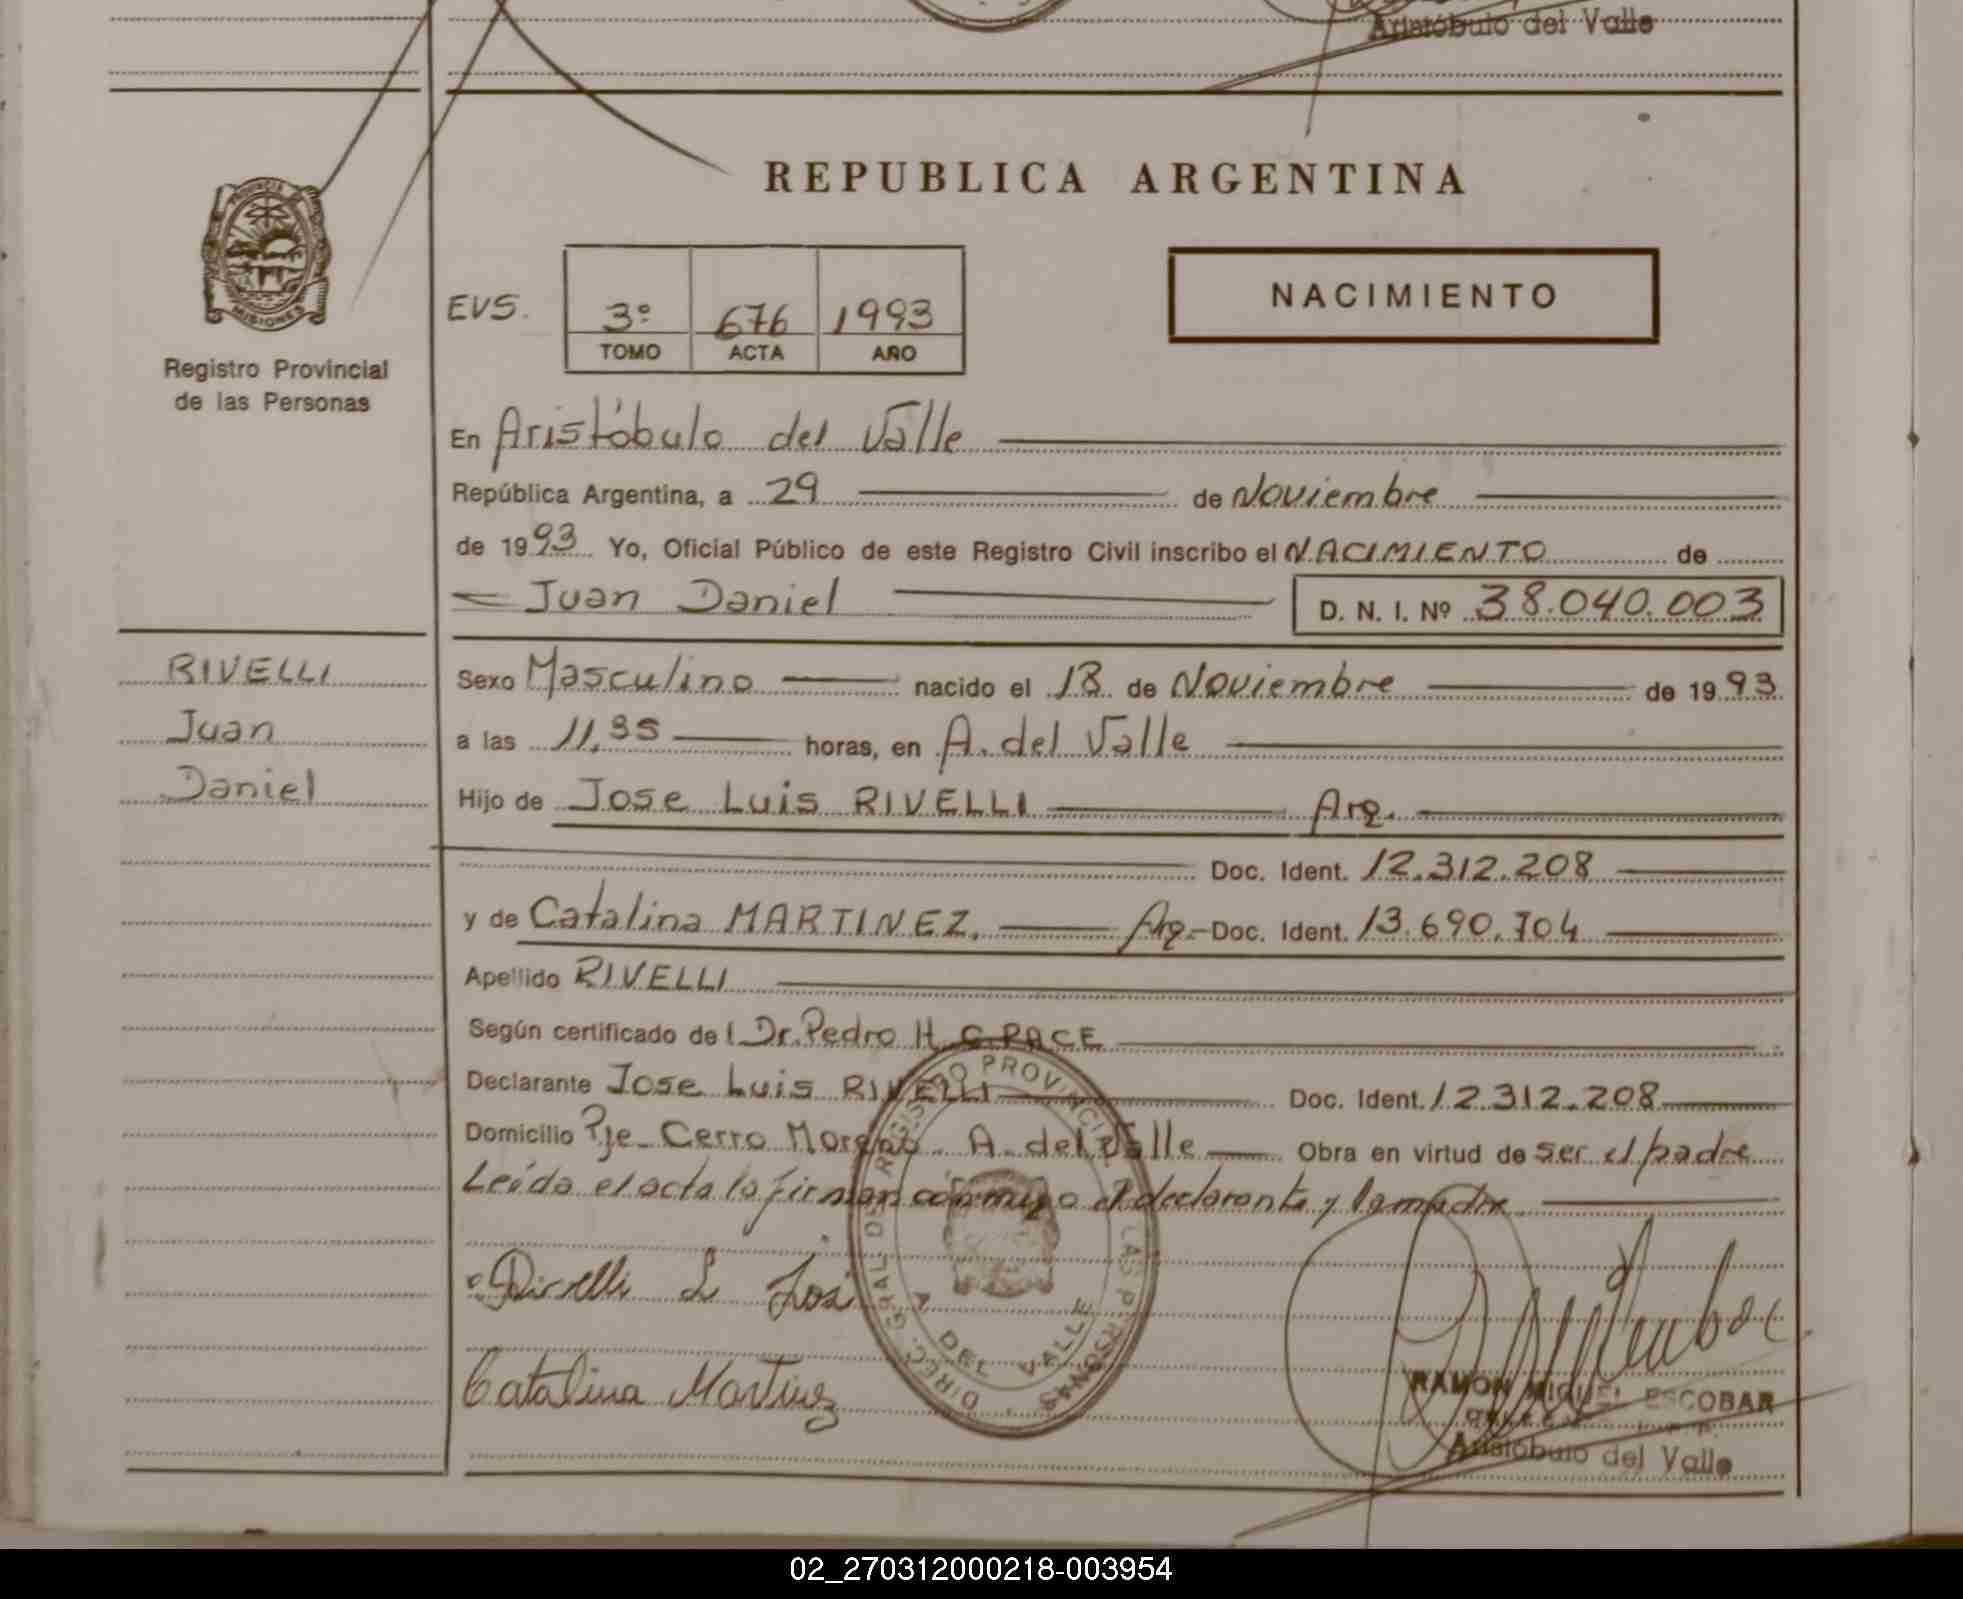 Aristóbulo del Valle
REPUBLICA ARGENTINA
PROVINCIA DE
MISIONES
Registro Provincial
de las Personas
EVS.
3º 676 1993
TOMO ACTA AÑO
NACIMIENTO
En Aristóbulo del Valle
República Argentina, a 29 de Noviembre
de 1993 Yo, Oficial Público de este Registro Civil inscribo el NACIMIENTO de
Juan Daniel D. N. I. Nº 38.040.003
RIVELLI
Juan
Daniel
Sexo Masculino nacido el 18 de Noviembre de 1993
a las 11,35 horas, en A. del Valle
Hijo de Jose Luis RIVELLI Arg.
Doc. Ident. 12.312.208
y de Catalina MARTINEZ. Arg.- Doc. Ident. 13.690.704
Apellido RIVELLI
Según certificado del Dr. Pedro H. C. PACE
Declarante Jose Luis RIVELLI Doc. Ident. 12312.208
Domicilio Pje. Cerro Moreno. A. del Valle Obra en virtud de ser el padre
Leída el acta la firman conmigo el declarante y la madre
Rivelli L José
Catalina Martinez
DIREC. GRAL DEL REGISTRO PROVINCIAL LAS PERSONAS
A DEL VALLE
RAMON MIGUEL ESCOBAR
Aristóbulo del Valle
02_270312000218-003954